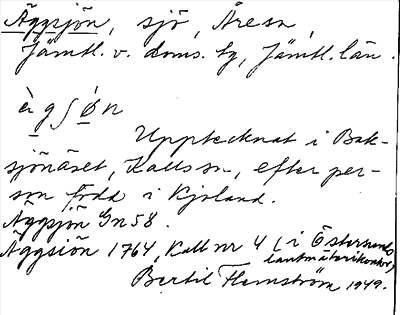 Äggsjön, sjö, Åre sn,
Jämtl. v. doms. tg, Jämtl. län.
ègʃǿn
Upptecknat i Bak-
sjönäset, Kalls sn, efter per-
son född i Kjoland.
Äggsjön Gn 58.
Äggsiön 1764, Kall nr 4 (i Östersunds
lantmäterikontor)
Bertil Flemström 1949.